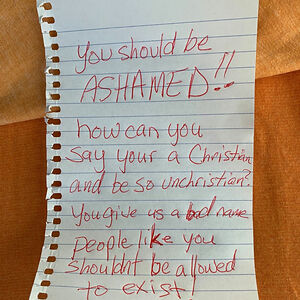 you should be
ASHAMED!!
how can you
say your a Christian
and be so unchristian?
You give us a bad name
people like you
shouldnt be allowed
to exist!